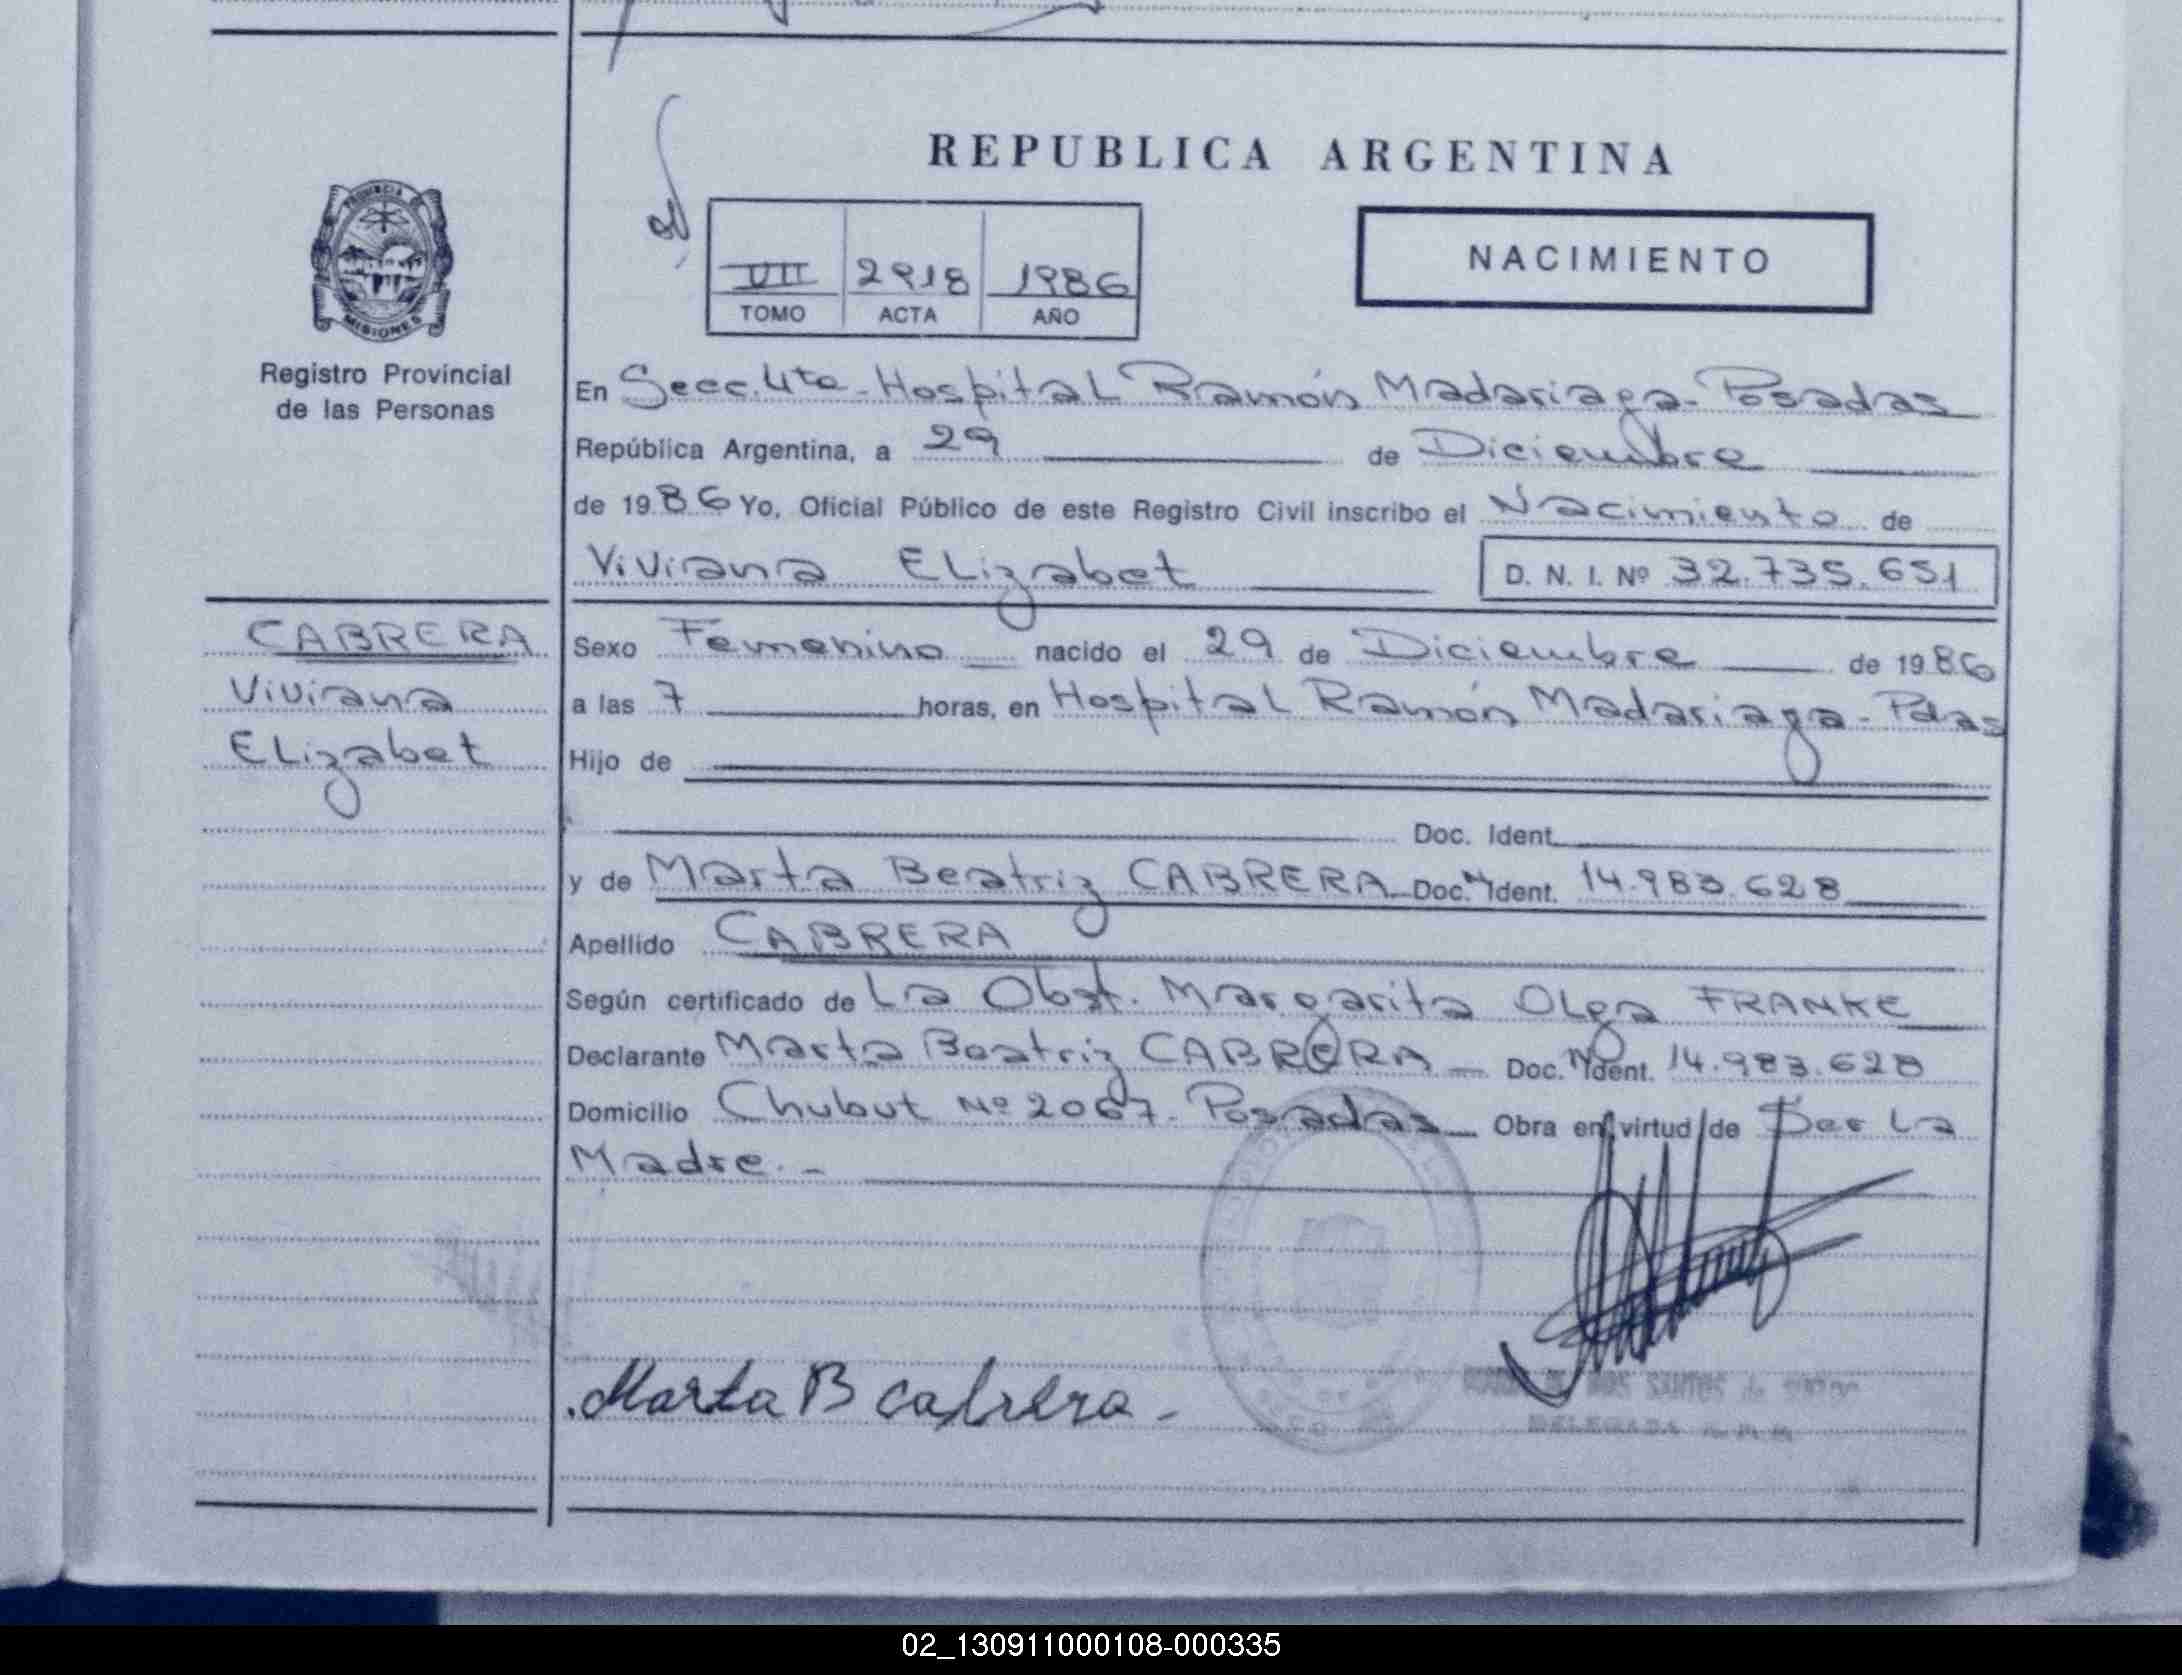 REPUBLICA ARGENTINA
PROVINCIA DE
MISIONES
Registro Provincial
de las Personas
VII 2918 1986
TOMO ACTA AÑO
NACIMIENTO
En Secc. 4ta - Hospital Ramón Madariaga - Posadas
República Argentina, a 29 de Diciembre
de 1986 Yo, Oficial Público de este Registro Civil inscribo el Nacimiento de
Viviana Elizabet D. N. I. Nº 32.735.651
CABRERA
Viviana
Elizabet
Sexo Femenino nacido el 29 de Diciembre de 1986
a las 7 horas, en Hospital Ramón Madariaga - Pdas
Hijo de
Doc. Ident.
y de Marta Beatriz CABRERA Doc. Ident. 14.983.628
Apellido CABRERA
Según certificado de La Obst. Margarita Olga FRANKE
Declarante Marta Beatriz CABRERA Doc. Ident. 14.983.628
Domicilio Chubut Nº 2067 - Posadas Obra en virtud de Ser La
Madre. -
Marta B cabrera -
DOS SANTOS de
DELEGADA
02_130911000108-000335